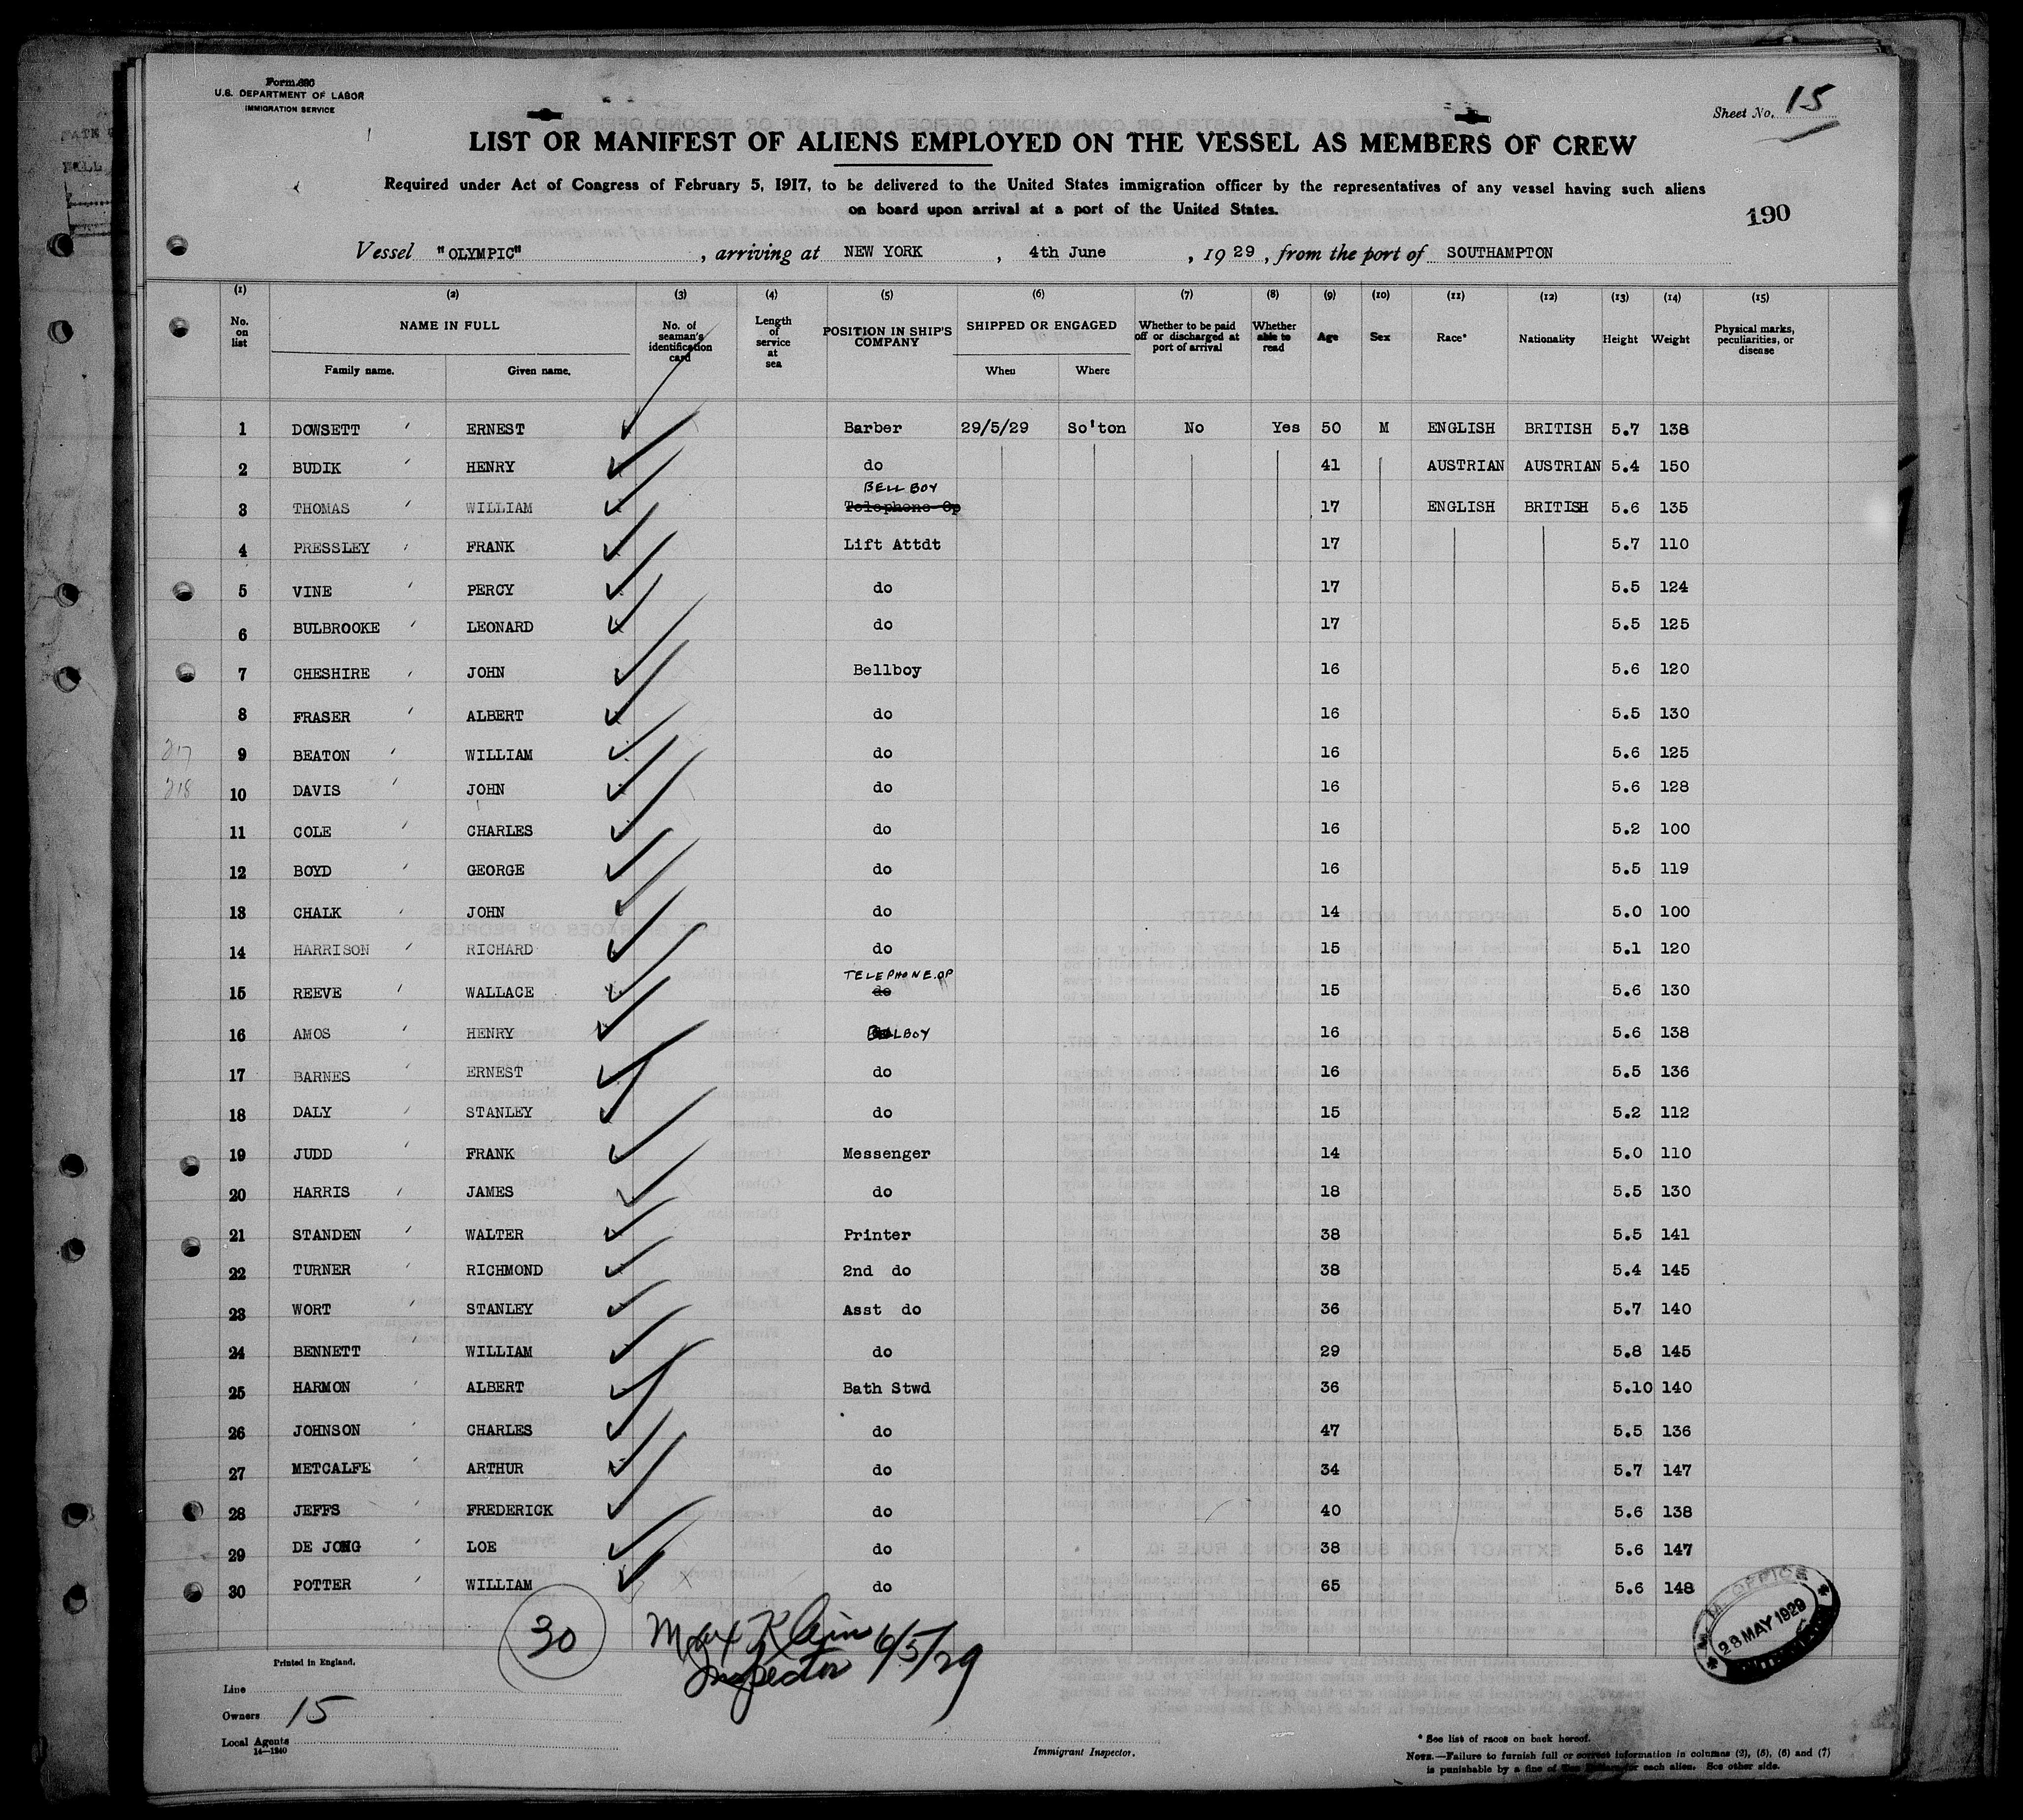 Form 680
U.S. DEPARTMENT OF LABOR
IMMIGRATION SERVICE
Sheet No. 15
LIST OR MANIFEST OF ALIENS EMPLOYED ON THE VESSEL AS MEMBERS OF CREW
Required under Act of Congress of February 5, 1917, to be delivered to the United States immigration officer by the representatives of any vessel having such aliens
on board upon arrival at a port of the United States.
190
Vessel "OLYMPIC", arriving at NEW YORK, 4th June, 1929, from the port of SOUTHAMPTON
(1) (2) (3) (4) (5) (6) (7) (8) (9) (10) (11) (12) (13) (14) (15)
No. on list NAME IN FULL Family name. Given name. No. of seaman's identification card Length of service at sea POSITION IN SHIP'S COMPANY SHIPPED OR ENGAGED When Where Whether to be paid off or discharged at port of arrival Whether able to read Age Sex Race* Nationality Height Weight Physical marks, peculiarities, or disease
1 DOWSETT ERNEST Barber 29/5/29 So'ton No Yes 50 M ENGLISH BRITISH 5.7 138
2 BUDIK HENRY do 41 AUSTRIAN AUSTRIAN 5.4 150
BELL BOY
3 THOMAS WILLIAM Telephone Op 17 ENGLISH BRITISH 5.6 135
4 PRESSLEY FRANK Lift Attdt 17 5.7 110
5 VINE PERCY do 17 5.5 124
6 BULBROOKE LEONARD do 17 5.5 125
7 CHESHIRE JOHN Bellboy 16 5.6 120
8 FRASER ALBERT do 16 5.5 130
217 9 BEATON WILLIAM do 16 5.6 125
218 10 DAVIS JOHN do 16 5.6 128
11 COLE CHARLES do 16 5.2 100
12 BOYD GEORGE do 16 5.5 119
13 CHALK JOHN do 14 5.0 100
14 HARRISON RICHARD do 15 5.1 120
TELEPHONE.OP
15 REEVE WALLACE do 15 5.6 130
16 AMOS HENRY BELLBOY 16 5.6 138
17 BARNES ERNEST do 16 5.5 136
18 DALY STANLEY do 15 5.2 112
19 JUDD FRANK Messenger 14 5.0 110
20 HARRIS JAMES do 18 5.5 130
21 STANDEN WALTER Printer 38 5.5 141
22 TURNER RICHMOND 2nd do 38 5.4 145
23 WORT STANLEY Asst do 36 5.7 140
24 BENNETT WILLIAM do 29 5.8 145
25 HARMON ALBERT Bath Stwd 36 5.10 140
26 JOHNSON CHARLES do 47 5.5 136
27 METCALFE ARTHUR do 34 5.7 147
28 JEFFS FREDERICK do 40 5.6 138
29 DE JONG LOE do 38 5.6 147
30 POTTER WILLIAM do 65 5.6 148
30 Max Klein 6/5/29
Inspector
OFFICE
28 MAY 1929
Printed in England.
Line
Owners 15
Local Agents
14—1240
Immigrant Inspector.
* See list of races on back hereof.
NOTE.—Failure to furnish full or correct information in columns (2), (5), (6) and (7)
is punishable by a fine of for each alien. See other side.